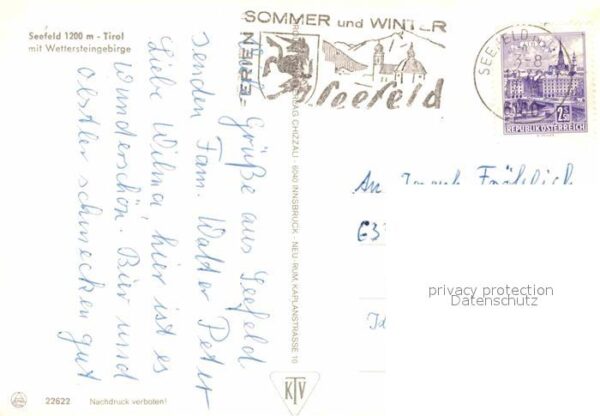 Seefeld 1200 m - Tirol
mit Wettersteingebirge
SOMMER und WINTER
FERIEN
Seefeld
SEEFELD
REPUBLIK ÖSTERREICH
Viele Grüße aus Seefeld
senden Fam. Walter Peter
Liebe Wilma, hier ist es
wunderschön. Bier und
schmecken gut
CHIZZALI · 6040 INNSBRUCK - NEU-RUM, KAPLANSTRASSE 10
An Joseph Fröhlich
privacy protection
Datenschutz
KTV
22622 Nachdruck verboten!